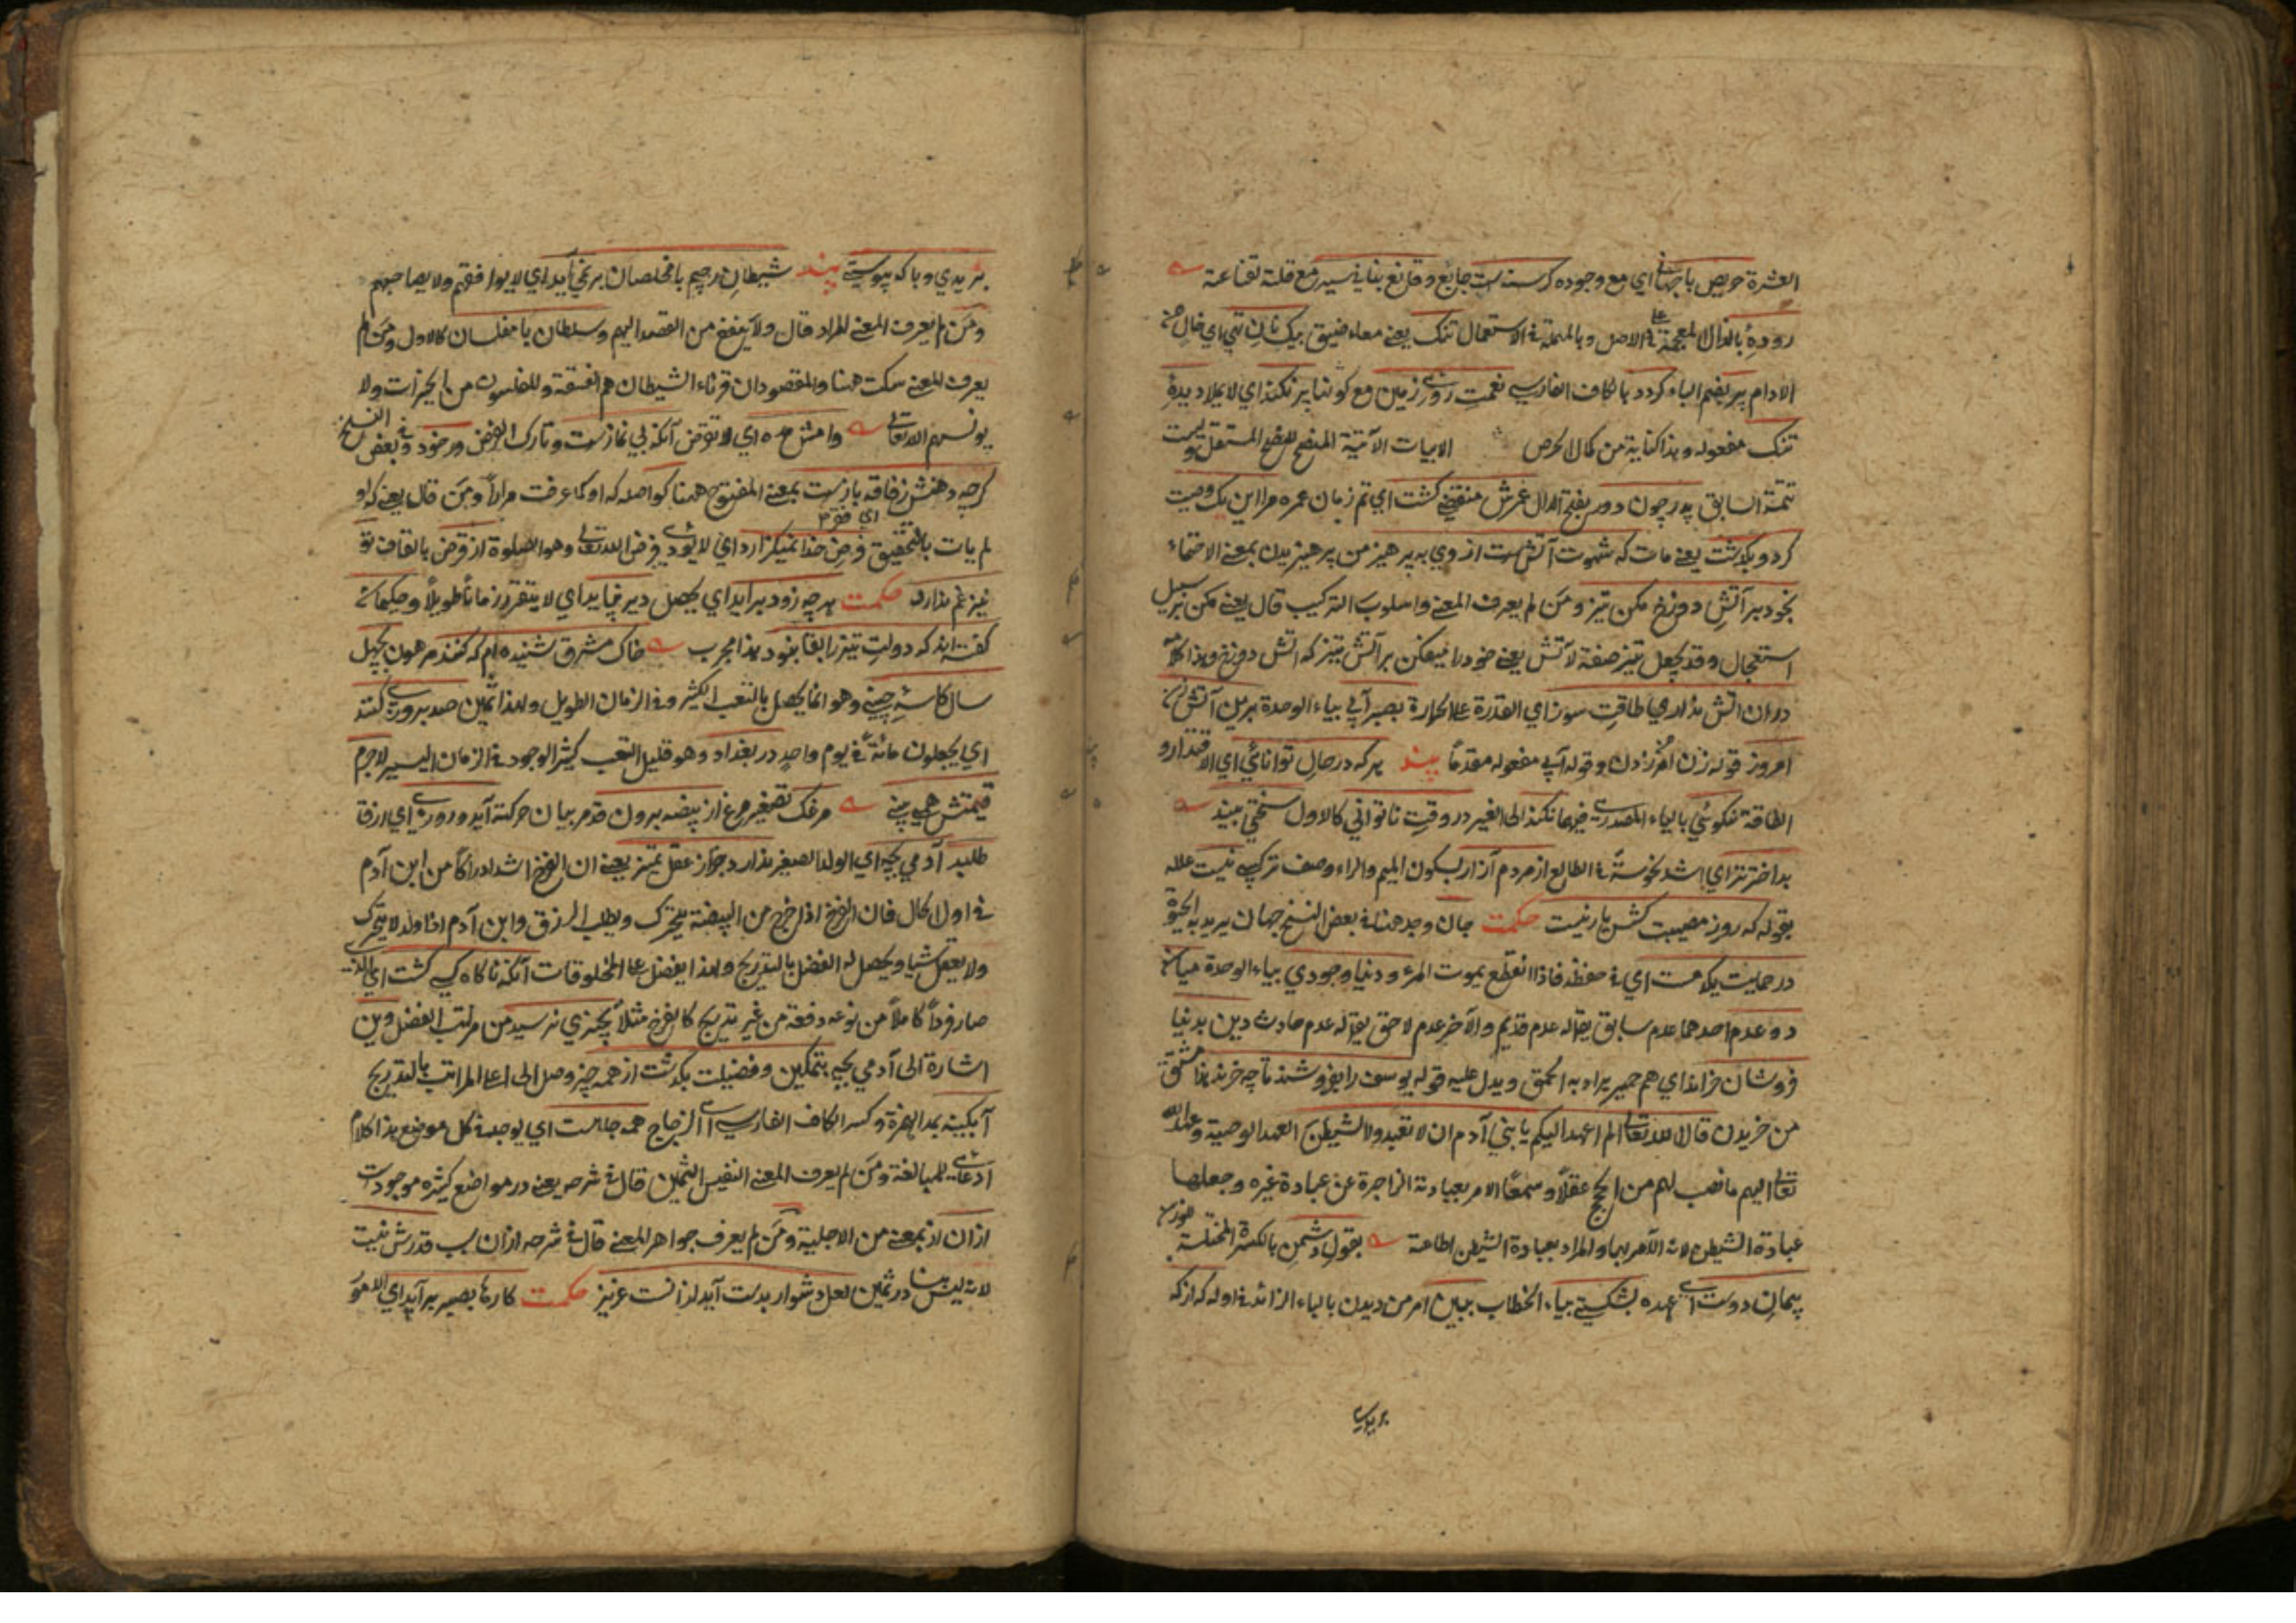 العشرة حريص با جهاني اي مع وجوده كرسنه است جايع وقانع بناني سير مع قلته لقناعته
رودهٔ بالدال المعجمة في الاصل وبالمهملة في الاستعمال تنك يعني معاء ضيق بيك نان تهي اي خال من
الادام پر بضم الباء كردد بالكاف الفارسي نعمت روي زمين مع كونها پر نكند اي لا يملأ ديدهٔ
تنك مفعوله وهذا كناية من كمال الحرص الابيات الآتية
تتمة السابق پدر چون دور بفتح الدال عمرش منقضي كشت اي تم زمان عمره مرا اين يك وصيت
كرد و بكذشت يعني مات كه شهوت آتش است ازوي به پرهيز من پرهيزيدن بمعنى الاحتماء
بخود بر آتش دوزخ مكن تيز ومن لم يعرف المعنى واسلوب التركيب قال يعني مكن بر سبيل
استعجال وقد يجعل تيز صفة لآتش يعني خود را ميفكن بر آتش تيز كه آتش دوزخ وهذا كلام
دران آتش نداري طاقت سوز اي القدرة على الحرارة بصبر آبي بياء الوحدة برين آتش زن
امروز قوله زن امر من زدن وقوله آبي مفعوله مقدما پند هر كه در حال توانائي اي الاقتدار و
الطاقة نكوئي بالياء المصدري فيهما نكند الى الغير در وقت ناتواني كالاول سختي بيند
بد اختر تر اي اشد نحوسة في الطالع از مردم آزار بسكون الميم والراء وصف تركيبي نيست علله
بقوله كه روز مصيبت كش يار نيست حكمت جان وجد هنا في بعض النسخ جهان يريد به الحيوة
در حمايت يكدمست اي في حفظه فاذا انقطع يموت المرء ودنيا وجودي بياء الوحدة ميان
دو عدم احدهما عدم سابق يقال له عدم قديم والآخر عدم لاحق يقال له عدم حادث دين بدنيا
فروشان خراند اي هم حمير يراد به الحمق ويدل عليه قوله يوسف را بفروشند تا چه خرند هذا مشتق
من خريدن قال الله تعالى الم اعهد اليكم يا بني آدم ان لا تعبدوا الشيطن العهد الوصية وعهد الله
تعالى اليهم ما نصب لهم من الحجج عقلا وسمعا الامر بعبادته الزاجرة عن عبادة غيره وجعلها
عبادة الشيطن لانه الآمر بها والمراد بعبادة الشيطن اطاعته بقول دشمن بالكسرة المختلسة للوزن
پيمان دوست اي عهده بشكستي بياء الخطاب ببين امر من ديدن بالباء الزائدة في اوله كه از كه
بريدي
بريدي وبا كه پيوستي پند شيطان رجيم با مخلصان بر نمي آيد اي لا يوافقهم ولا يصاحبهم
ومن لم يعرف المعنى المراد قال ولا ينفع من القصد اليهم وسلطان با مفلسان كالاول ومن لم
يعرف المعنى سكت هنا والمقصود ان قرناء الشيطان هم الفسقة وللمفلسون من الخيرات ولا
يونسهم الا تعالى وامش مده اي لا تقرض آنكه بي نمازست وتارك الفرض ور خود وفي بعض النسخ
كرچه دهنش ز فاقه بازست بمعنى المفتوح همنا كو اصله كه او كما عرفت مرارا ومن قال يعني كه او
لم يات بالتحقيق فرض خدا نميكزارد اي لا يؤدي فرض الله تعالى وهو الصلوة از قرض بالقاف تو
نيز غم ندارد حكمت هر چه زود برآيد اي يحصل دير نپايد اي لا يتقرر زمانا طويلا وحكما
كفته اند كه دولت تيز را بقا نبود هذا مجرب خاك مشرق شنيده ام كه كنند مرهون بچهل
سال كاسهٔ چيني وهو انما يحصل بالتعب الكثير وفي الزمان الطويل ولهذا ثمين صد بروزي كنند
اي يجعلون مائة في يوم واحد در بغداد وهو قليل التعب كثير الوجود في الزمان اليسير لاجرم
قيمتش همي بيني مرغك تصغير مرغ از بيضه برون قدم بيان حركته آيد وروزي اي رزقا
طلبد آدمي بچه اي الولد الصغير ندارد خبر از عقل وتميز يعني ان الفرخ اشد ادراكا من ابن آدم
في اول الحال فان الفرخ اذا خرج من البيضة يتحرك ويطلب الرزق وابن آدم اذا ولد لا يتحرك
ولا يعقل شيئا ويحصل له الفضل بالتدريج ولهذا يفضل على المخلوقات آنكه ناكاه كسي كشت اي الذي
صار فردا كاملا من نوعه دفعة من غير تدريج كالفرخ مثلا بچيزي نرسيد من مراتب الفضل وين
اشارة الى آدمي بچه بتمكين وفضيلت بكذشت از همه چيز وصل الى اعلى المراتب بالتدريج
آبكينه بمد الهمزة وكسر الكاف الفارسي اي الزجاج همه جا هست اي يوجد في كل موضع هذا الكلام
ادعائي للمبالغة ومن لم يعرف المعنى النفيس الثمين قال في شرحه يعني در مواضع كثيره موجودست
ازان از بمعنى من الاجلية ومن لم يعرف جواهر المعنى قال في شرحه ازان سبب قدرش نيست
لانه ليس در ثمين لعل دشوار بدست آيد ازانست عزيز حكمت كارها بصبر برآيد اي الامور